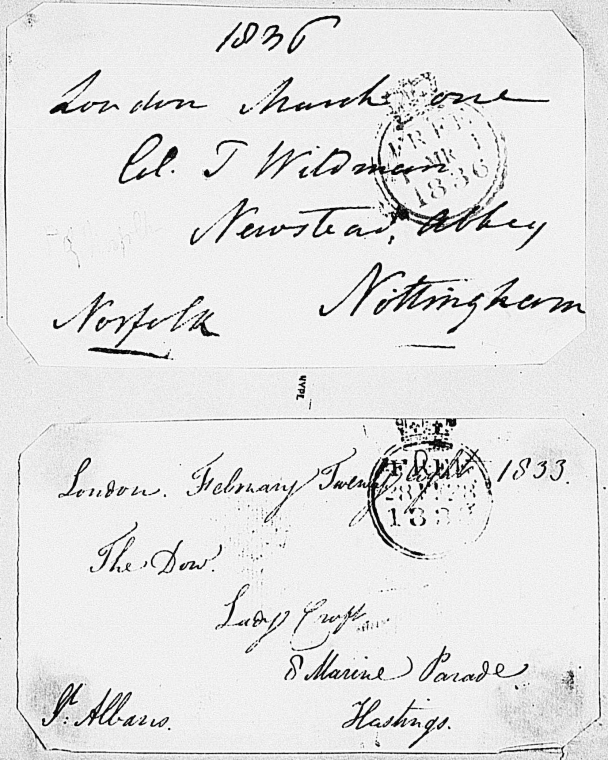 1836
London March one
Col. T Wildman
Newstead, Abbey
Nottingham
Norfolk
FREE
MR 1
1836
London. February Twenty eight 1833.
FREE
28 FE 28
1833
The Dow.
Lady Croft
8 Marine Parade
Hastings.
St. Albans.